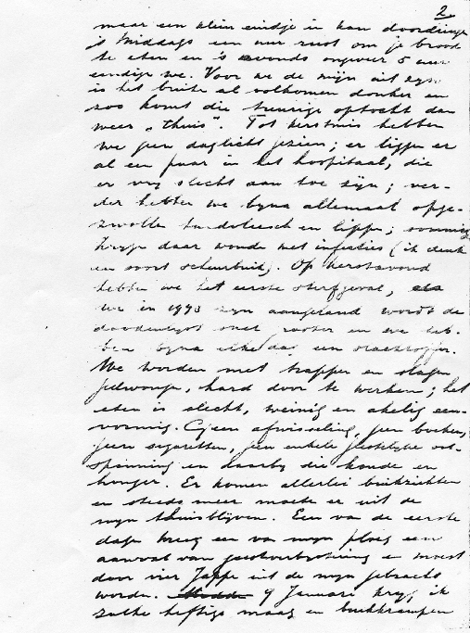 2
maar een klein eindje in kan doordringen
's Middags een uur rust om je brood
te eten en 's avonds ongeveer 5 uur
eindigen we. Voor we de mijn uit zijn
is het buiten al volkomen donker en
zoo komt die treurige optocht dan
weer "thuis". Tot kerstmis hebben
we geen daglicht gezien; er liggen er
al een paar in het hospitaal, die
er erg slecht aan toe zijn; ver-
der hebben we bijna allemaal opge-
zwollen tandvleesch en lippen; sommigen
krijgen daar wonden met infecties (ik denk
een soort scheurbuik). Op kerstavond
hebben we het eerste sterfgeval, als
we in 1943 zijn aangeland wordt de
doodenlijst snel grooter en we heb-
ben bijna elke dag een
We worden met trappen en slagen
gedwongen, hard door te werken; het
eten is slecht, weinig en akelig een-
vormig. Geen afwisseling, geen boeken,
geen sigaretten, geen enkele geestelijke ont-
spanning en daarbij die koude en
honger. Er komen allerlei buikziekten
en steeds meer moeten er uit de
mijn thuisblijven. Een van de eerste
dagen kreeg een van mijn ploeg een
aanval van en moest
door vier Jappen uit de mijn gebracht
worden. 9 Januari krijg ik
zulke heftige maag en buikkrampen